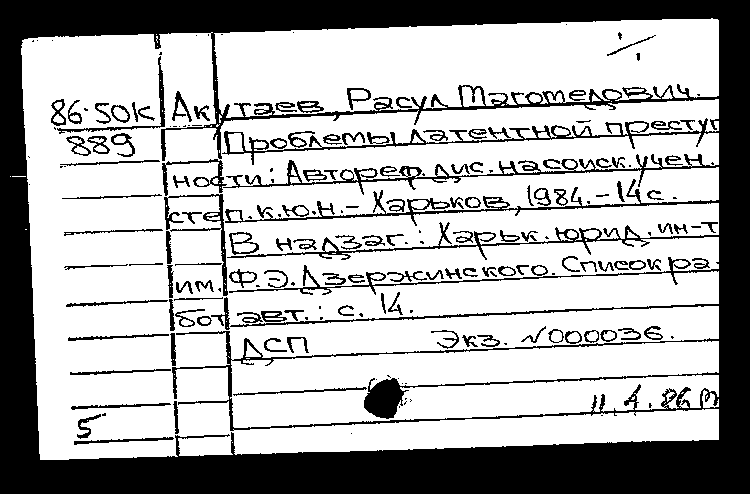 86-50К Акутаев, Расул Магомедович.
889 Проблемы латентной преступ
ности: Автореф. дис. на соиск. учен.
степ. к.ю.н. - Харьков, 1984. - 14 с.
В надзаг.: Харьк. юрид. ин-т
им. Ф.Э. Дзержинского. Список ра-
бот авт.: с. 14.
ДСП Экз. №000036.
11.4.86
5